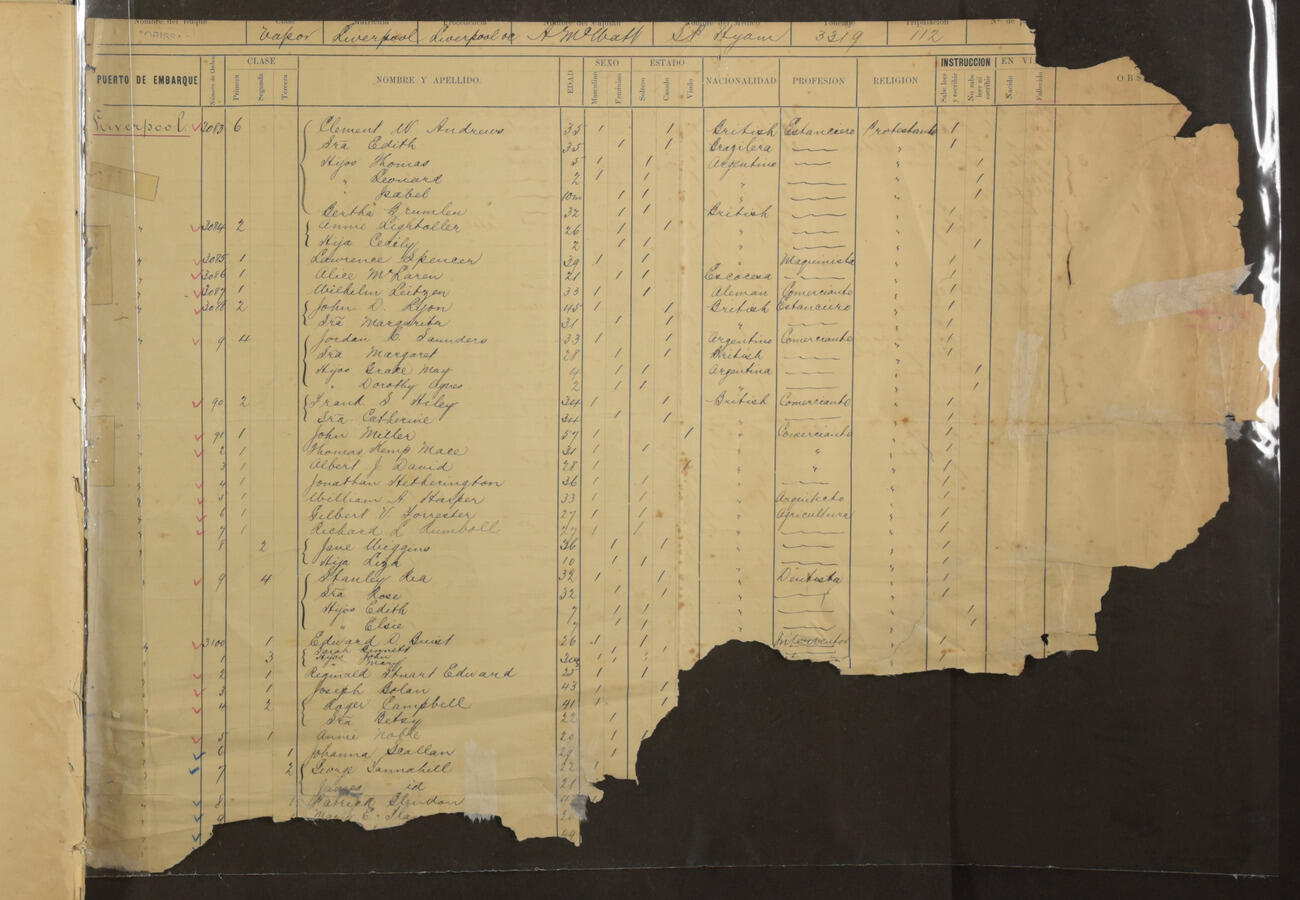 Nombre del Buque Clase Matricula Procedencia Nombre del Capitan Nombre del Médico Tonelaje Tripulación N.º de
ORISSA Vapor Liverpool Liverpool A McWatt St Hyam 3319 112
PUERTO DE EMBARQUE Número de Orden CLASE Primera Segunda Tercera NOMBRE Y APELLIDO. EDAD SEXO Masculino Femenino ESTADO Soltero Casado Viudo NACIONALIDAD PROFESION RELIGION INSTRUCCION Sabe leer y escribir No sabe leer ni escribir EN VI Nacido Fallecido OBS
Liverpool 3083 6 Clement W Andrews 35 1 1 British Estanciero Protestante 1
Sra Edith 35 1 1 Brazilera " 1
Hijos Thomas 5 1 1 Argentino " 1
" Leonard 2 1 1 " " 1
" Isabel 10m 1 1 " " 1
Bertha Grumlen 32 1 1 British " 1
" 3084 2 Annie Lightoller 26 1 1 " " 1
Hija Cecily 2 1 1 " " 1
" 3085 1 Lawrence Spencer 39 1 1 " Maquinista " 1
" 3086 1 Alice McLaren 21 1 1 Escocesa " 1
" 3087 1 Wilhelm Leitzen 33 1 1 Aleman Comerciante " 1
" 3088 2 John D. Lyon 45 1 1 British Estanciero " 1
Sra Margarita 31 1 1 " " 1
" 9 4 Jordan C. Saunders 33 1 1 Argentino Comerciante " 1
Sra Margaret 28 1 1 British " 1
Hijos Grace May 4 1 1 Argentina " 1
" Dorothy Agnes 2 1 1 " " 1
" 90 2 Frank S Hiley 34 1 1 British Comerciante " 1
Sra Catherine 34 1 1 " " 1
" 91 1 John Miller 57 1 1 " Comerciante " 1
" 2 1 Thomas Kemp Mace 31 1 1 " " " 1
" 3 1 Albert J David 28 1 1 " " " 1
" 4 1 Jonathan Hetherington 36 1 1 " " 1
" 5 1 William A. Harper 33 1 1 " Arquitecto " 1
" 6 1 Gilbert V Forrester 27 1 1 " Agricultura " 1
" 7 1 Richard L Rumboll 27 1 1 " " 1
" 8 2 Jane Wiggins 36 1 1 " " 1
Hija Liza 10 1 1 " " 1
" 9 4 Stanley Rea 32 1 1 " Dentista " 1
Sra Rose 32 1 1 " " 1
Hijos Edith 7 1 1 " " 1
" Elsie 1 1 " " 1
" 3100 1 Edward D. Buist 26 1 1 " " 1
Sarah Sinnett
" 1 3 Hijos John
" Mary
" 2 1 Reginald Stuart Edward 25 1 1
" 3 1 Joseph Bolan 43 1 1
" 4 2 Roger Campbell 41 1 1
Sra Betsy 22 1
" 5 1 Annie Noble 20 1 1
" 6 1 Johanna Scallan 29 1
" 7 2 George Tannahill 22 1
James id 21
" 8 1 Patrick
9 Mary E.
49